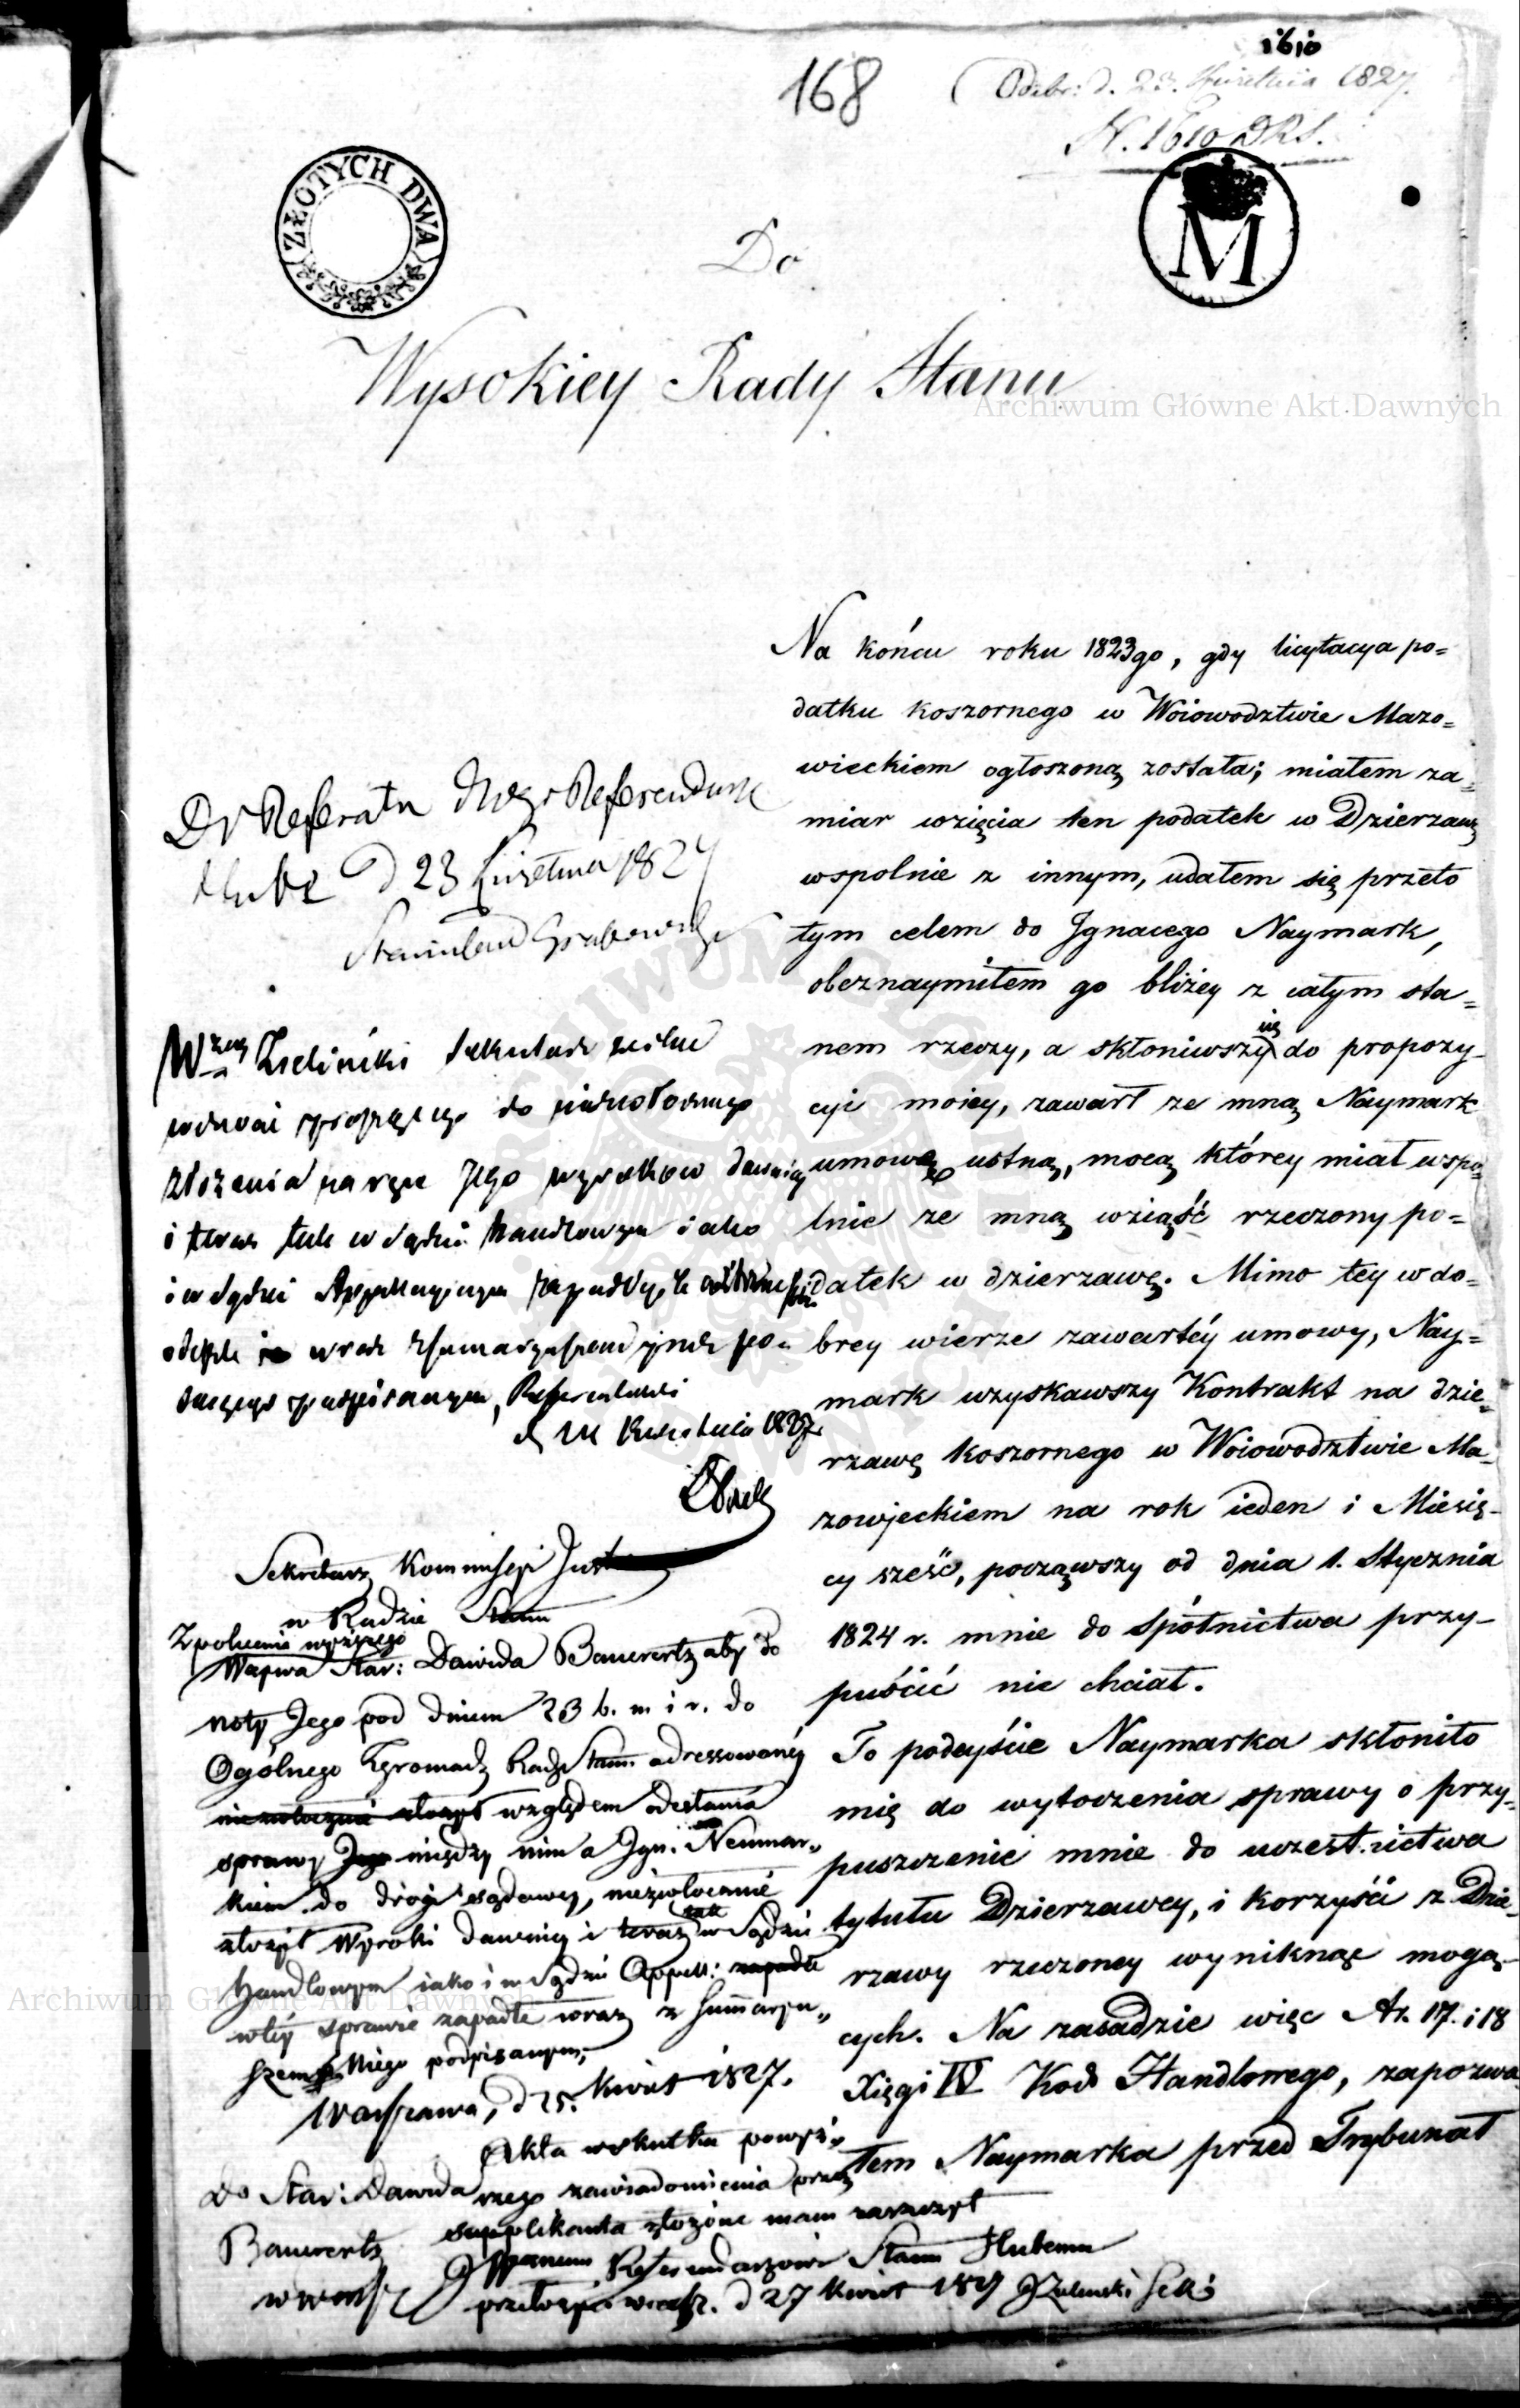 1610
168
Odebr: d. 23. Kwietnia 1827.
N. 1610 DRS.
ZŁOTYCH DWA
M
Do
Wysokiey Rady Stanu
Archiwum Główne Akt Dawnych
Na końcu roku 1823go, gdy licytacya po=
datku koszernego w Woiowodztwie Mazo=
wieckiem ogłoszoną została; miałem za=
miar wzięcia ten podatek w Dzierzawę
wspolnie z innym, udałem się przeto
tym celem do Jgnacego Naymark,
obeznaymiłem go bliżey z całym sta=
nem rzeczy, a skłoniwszy się do propozy-
cyi moiey, zawarł ze mną Naymark
umowę ustną, mocą którey miał wspo=
lnie ze mną wziąść rzeczony po=
datek w dzierzawę. Mimo tey w do=
brey wierze zawartéy umowy, Nay=
mark uzyskawszy Kontrakt na dzie=
rzawę koszernego w Woiowodztwie Ma=
zowieckiem na rok ieden i Miesię-
cy sześć, począwszy od dnia 1. Stycznia
1824 r. mnie do spółnictwa przy-
puścić nie chciał.
To podeyście Naymarka skłoniło
mię do wytoczenia sprawy o przy=
puszczenie mnie do uczestnictwa
tytułu Dzierzawcy, i korzyści z Dzie=
rzawy rzeczoney wyniknąć mogą-
cych. Na zasadzie więc Ar. 17. i 18
Xięgi IV Kod Handlowego, zapozwa=
łem Naymarka przed Trybunał
Do Referatu Referendarza
Hube d 23 Kwietnia 1827
Stanisław Grabowski
Zieliński Sekretarz
do niezwłocznego
złożenia na ręce Jego wyroków dawniey
i teraz tak w Sądzie Handlowym iako
i w Sądzie Appellacyinym
wraz
podpisanym, Referentowi
d Kwietnia 1827.
Sekretarz Kommissyi
w Radzie Stanu
Z polecenia wyższego
Wzywa Star: Dawida Bauerertz aby do
noty Jego pod dniem 23 b. m i r. do
Ogólnego Zgromadz Rady Stanu adressowanéy
względem odesłania
sprawy między nim a Jgn. Neumar=
kiem do drogi sądowey, niezwłocznie
złożył Wyroki dawniey i teraz tak w Sądzie
Handlowym iako i w Sądzie Appell:
w téy sprawie zapadłe wraz z Summaryu=
szem przez Niego podpisanym,
Warszawa, d 25. Kwiet 1827.
Do Star: Dawida
Bauerertz
w Warsz
Akta w skutku powyż=
szego zawiadomienia przez
supplikanta złożone mam zaszczyt
Referendarzowi Stanu Hubemu
przełożyć w Warsz. d 27 Kwiet 1827 Zieliński Sek:
Archiwum Główne Akt Dawnych